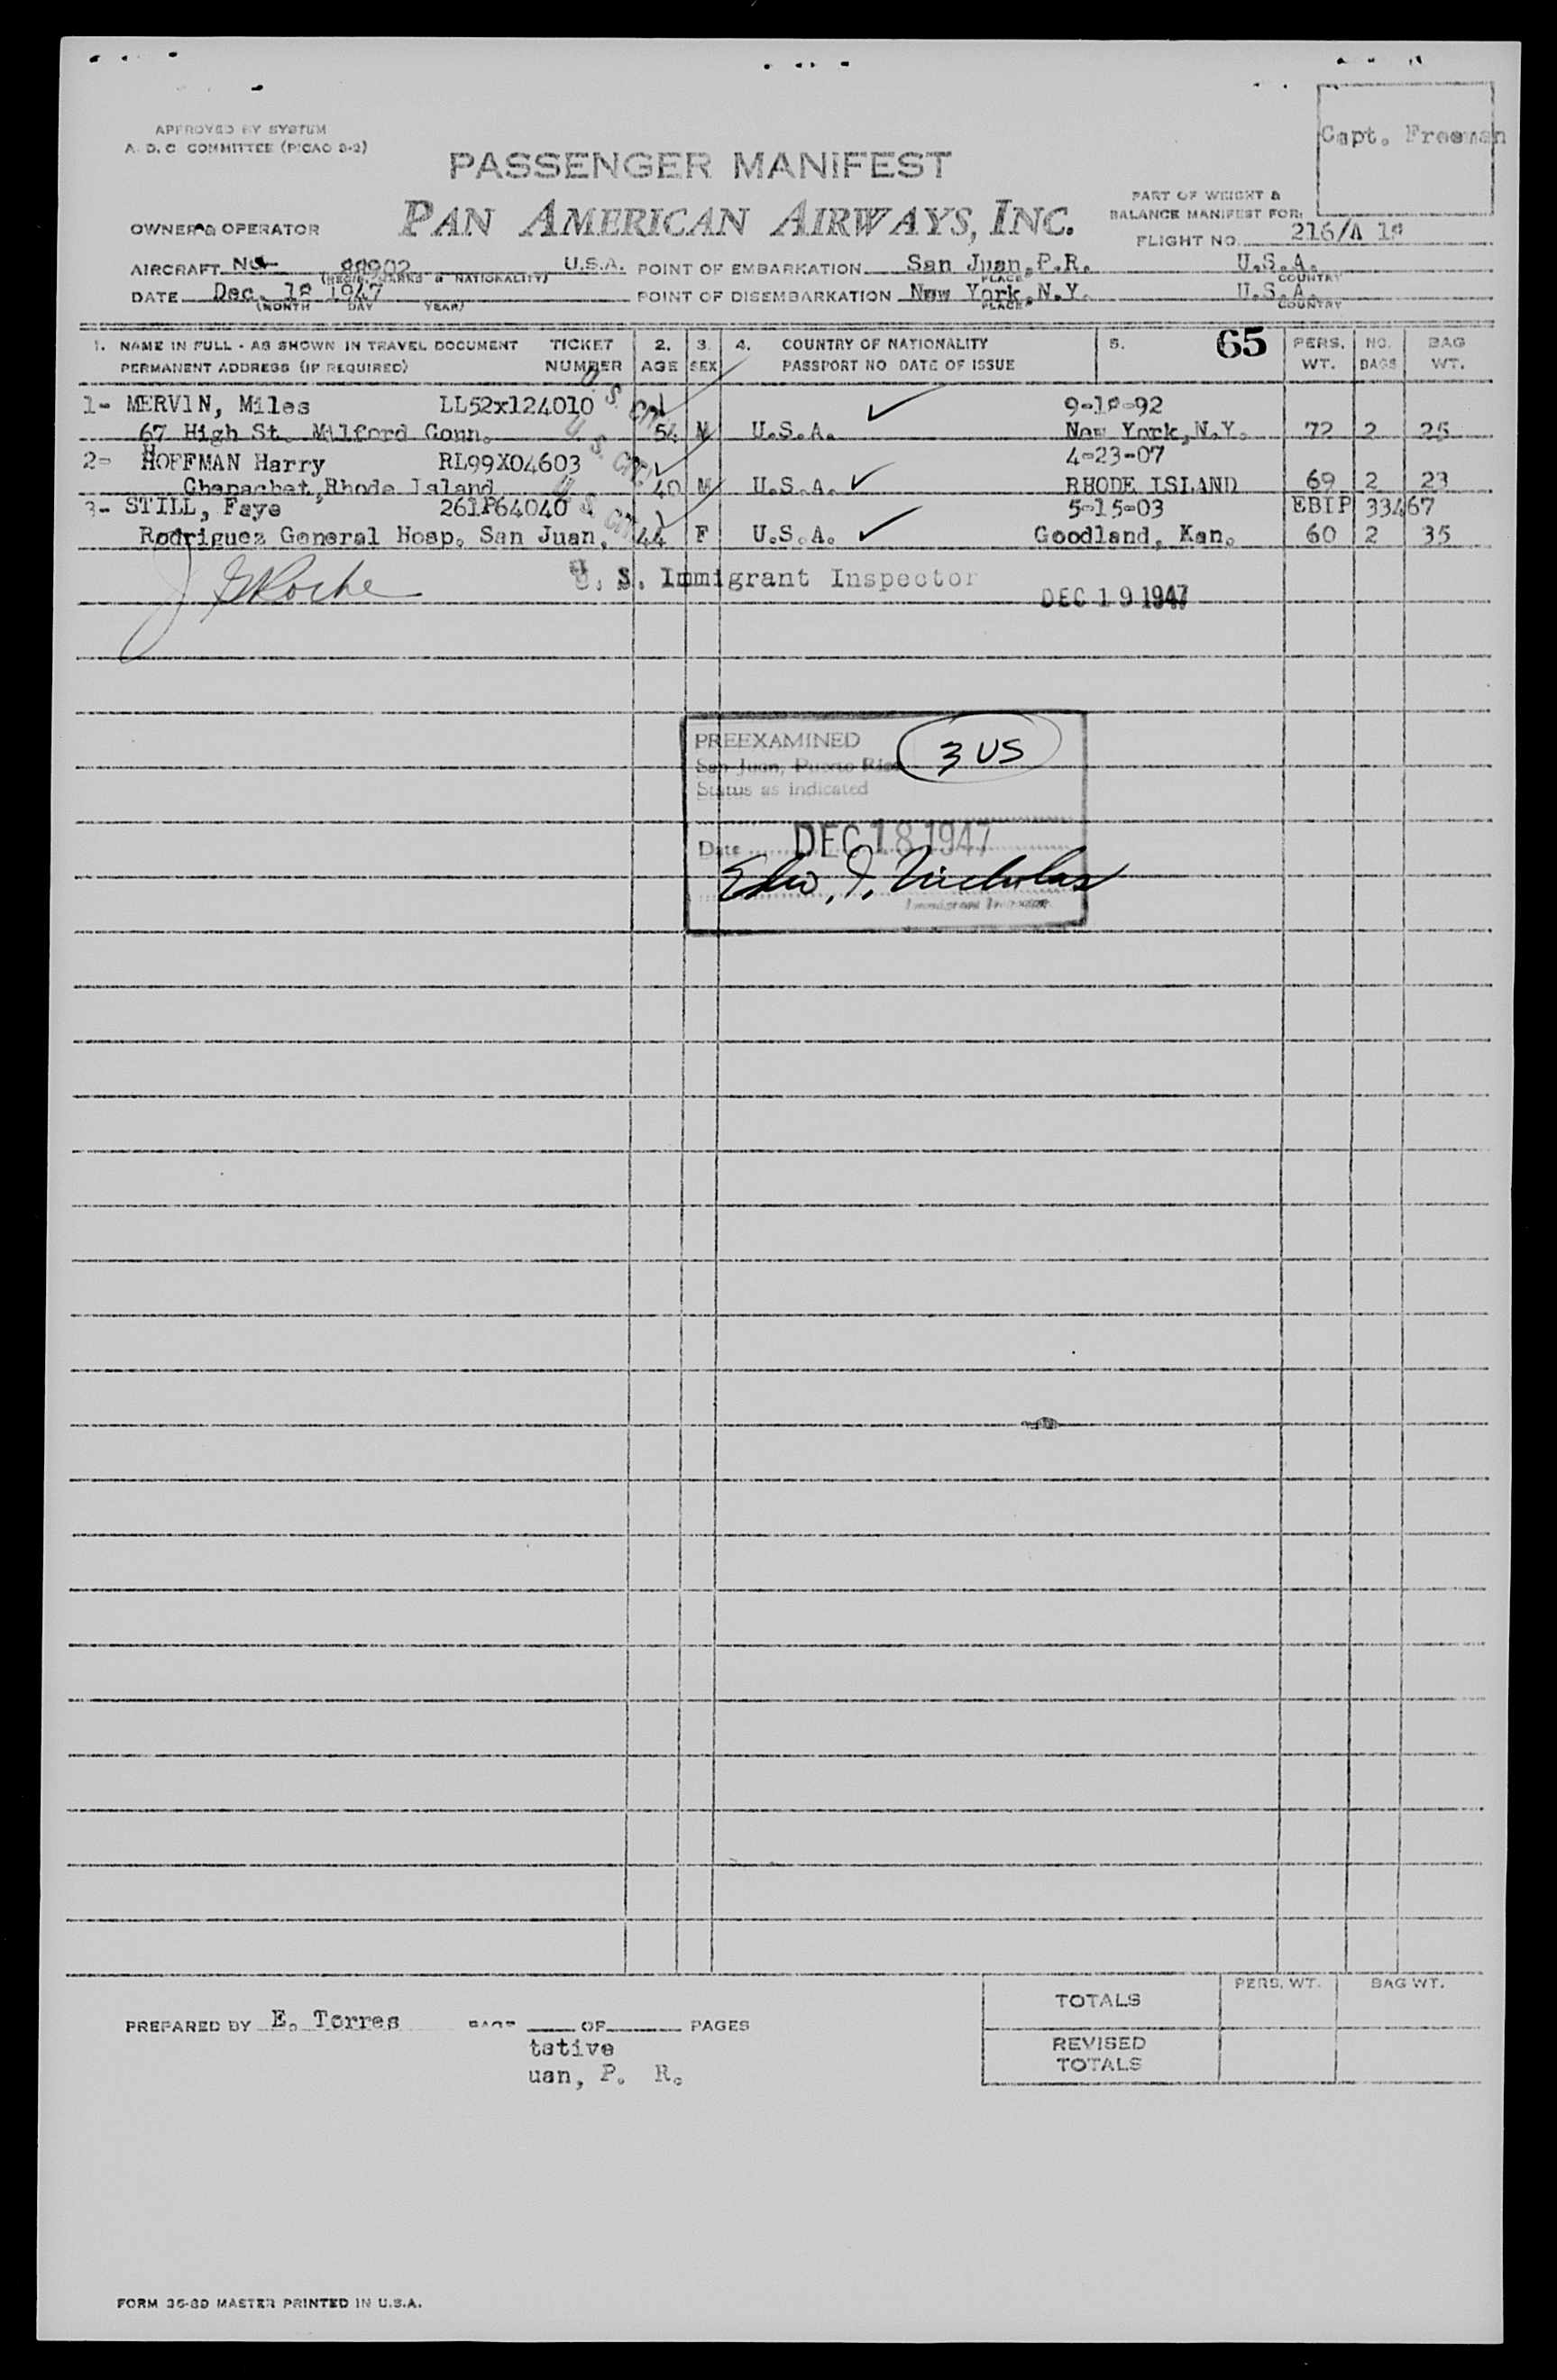 APPROVED BY SYSTEM
A. D. C. COMMITTEE (PICAO 3-2)
Capt. Freeman
PASSENGER MANIFEST
PART OF WEIGHT &
BALANCE MANIFEST FOR:
OWNER & OPERATOR PAN AMERICAN AIRWAYS, INC.
FLIGHT NO. 216/A 18
AIRCRAFT NC- 88902 U.S.A. POINT OF EMBARKATION San Juan, P.R. U.S.A.
(REGIS. MARKS & NATIONALITY) PLACE COUNTRY
DATE Dec. 18 1947 POINT OF DISEMBARKATION New York, N.Y. U.S.A.
(MONTH DAY YEAR) PLACE COUNTRY
1. NAME IN FULL - AS SHOWN IN TRAVEL DOCUMENT TICKET 2. 3. 4. COUNTRY OF NATIONALITY 5. 65 PERS. NO. BAG
PERMANENT ADDRESS (IF REQUIRED) NUMBER AGE SEX PASSPORT NO DATE OF ISSUE WT. BAGS WT.
1- MERVIN, Miles LL52x124010 U. S. CIT. 9-18-92
67 High St. Milford Conn. 54 M U.S.A. New York, N.Y. 72 2 25
2- HOFFMAN Harry RL99X04603 U. S. CIT. 4-23-07
Chepachet, Rhode Island 40 M U.S.A. RHODE ISLAND 69 2 23
3- STILL, Faye 261P64040 U. S. CIT. 5-15-03 EBIP 33467
Rodriguez General Hosp. San Juan, 44 F U.S.A. Goodland, Kan. 60 2 35
J G Roche U. S. Immigrant Inspector DEC 19 1947
PREEXAMINED 3 US
San Juan, Puerto Rico
Status as indicated
Date DEC 18 1947
Edw. J. Nicholas
Immigrant Inspector
TOTALS PERS. WT. BAG WT.
PREPARED BY E. Torres PAGE OF PAGES
REVISED
TOTALS
tative
uan, P. R.
FORM 36-89 MASTER PRINTED IN U.S.A.